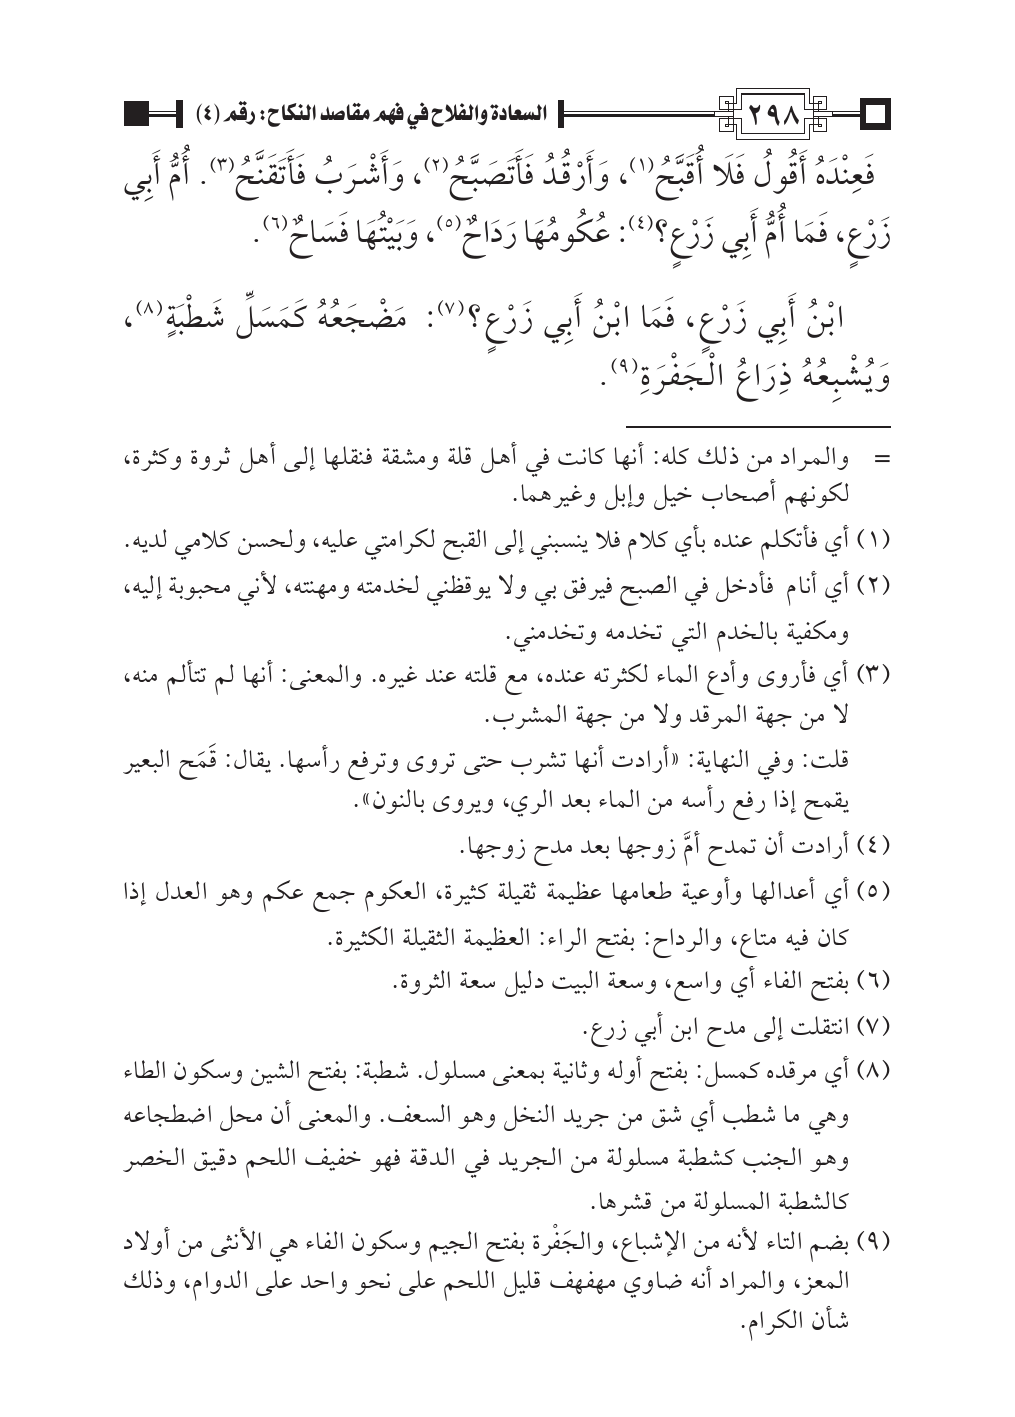 ٢٩٨ السعادة والفلاح في فهم مقاصد النكاح: رقم (٤)
فَعِنْدَهُ أَقُولُ فَلَا أُقَبَّحُ(١)، وَأَرْقُدُ فَأَتَصَبَّحُ(٢)، وَأَشْرَبُ فَأَتَقَنَّحُ(٣). أُمُّ أَبِي
زَرْعٍ، فَمَا أُمُّ أَبِي زَرْعٍ؟(٤): عُكُومُهَا رَدَاحٌ(٥)، وَبَيْتُهَا فَسَاحٌ(٦).
ابْنُ أَبِي زَرْعٍ، فَمَا ابْنُ أَبِي زَرْعٍ؟(٧): مَضْجَعُهُ كَمَسَلِّ شَطْبَةٍ(٨)،
وَيُشْبِعُهُ ذِرَاعُ الْجَفْرَةِ(٩).
= والمراد من ذلك كله: أنها كانت في أهل قلة ومشقة فنقلها إلى أهل ثروة وكثرة،
لكونهم أصحاب خيل وإبل وغيرهما.
(١) أي فأتكلم عنده بأي كلام فلا ينسبني إلى القبح لكرامتي عليه، ولحسن كلامي لديه.
(٢) أي أنام فأدخل في الصبح فيرفق بي ولا يوقظني لخدمته ومهنته، لأني محبوبة إليه،
ومكفية بالخدم التي تخدمه وتخدمني.
(٣) أي فأروى وأدع الماء لكثرته عنده، مع قلته عند غيره. والمعنى: أنها لم تتألم منه،
لا من جهة المرقد ولا من جهة المشرب.
قلت: وفي النهاية: «أرادت أنها تشرب حتى تروى وترفع رأسها. يقال: قَمَح البعير
يقمح إذا رفع رأسه من الماء بعد الري، ويروى بالنون».
(٤) أرادت أن تمدح أمَّ زوجها بعد مدح زوجها.
(٥) أي أعدالها وأوعية طعامها عظيمة ثقيلة كثيرة، العكوم جمع عكم وهو العدل إذا
كان فيه متاع، والرداح: بفتح الراء: العظيمة الثقيلة الكثيرة.
(٦) بفتح الفاء أي واسع، وسعة البيت دليل سعة الثروة.
(٧) انتقلت إلى مدح ابن أبي زرع.
(٨) أي مرقده كمسل: بفتح أوله وثانية بمعنى مسلول. شطبة: بفتح الشين وسكون الطاء
وهي ما شطب أي شق من جريد النخل وهو السعف. والمعنى أن محل اضطجاعه
وهو الجنب كشطبة مسلولة من الجريد في الدقة فهو خفيف اللحم دقيق الخصر
كالشطبة المسلولة من قشرها.
(٩) بضم التاء لأنه من الإشباع، والجَفْرة بفتح الجيم وسكون الفاء هي الأنثى من أولاد
المعز، والمراد أنه ضاوي مهفهف قليل اللحم على نحو واحد على الدوام، وذلك
شأن الكرام.